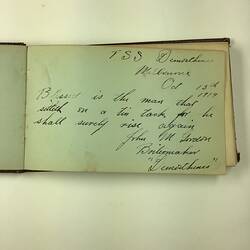 T.S.S. Demosthenes
Melbourne
Oct 13th
1919
Blessed is the man that
sitteth on a tin tack for he
shall surely rise again
John M. Gordon
Boilermaker
"Demosthenes"